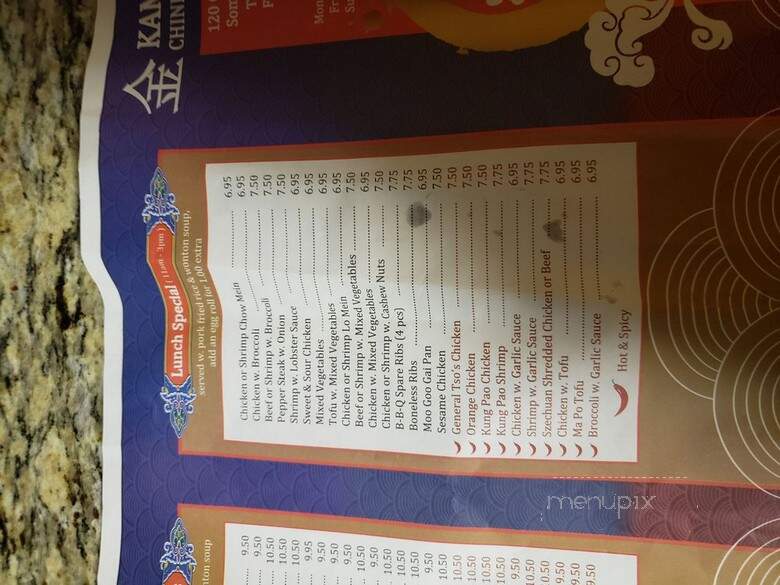 金 KAN
CHIN
120
Som
T
F
Mon
Fr
Su
Lunch Special (11am - 3pm)
served w. pork fried rice & wonton soup,
add an egg roll for 1.00 extra
Chicken or Shrimp Chow Mein 6.95
Chicken w. Broccoli 6.95
Beef or Shrimp w. Broccoli 7.50
Pepper Steak w. Onion 7.50
Shrimp w. Lobster Sauce 7.50
Sweet & Sour Chicken 6.95
Mixed Vegetables 6.95
Tofu w. Mixed Vegetables 6.95
Chicken or Shrimp Lo Mein 6.95
Beef or Shrimp w. Mixed Vegetables 7.50
Chicken w. Mixed Vegetables 6.95
Chicken or Shrimp w. Cashew Nuts 7.50
B-B-Q Spare Ribs (4 pcs) 7.75
Boneless Ribs 7.75
Moo Goo Gai Pan 6.95
Sesame Chicken 7.50
General Tso's Chicken 7.50
Orange Chicken 7.50
Kung Pao Chicken 7.50
Kung Pao Shrimp 7.75
Chicken w. Garlic Sauce 6.95
Shrimp w. Garlic Sauce 7.75
Szechuan Shredded Chicken or Beef 7.75
Chicken w. Tofu 6.95
Ma Po Tofu 6.95
Broccoli w. Garlic Sauce 6.95
Hot & Spicy
menupix
wonton soup
9.50
9.50
10.50
10.50
10.50
9.95
9.50
9.50
9.50
10.50
9.50
10.50
10.50
10.50
9.50
10.50
10.50
10.50
10.50
10.50
9.50
10.50
10.50
9.50
9.50
9.50